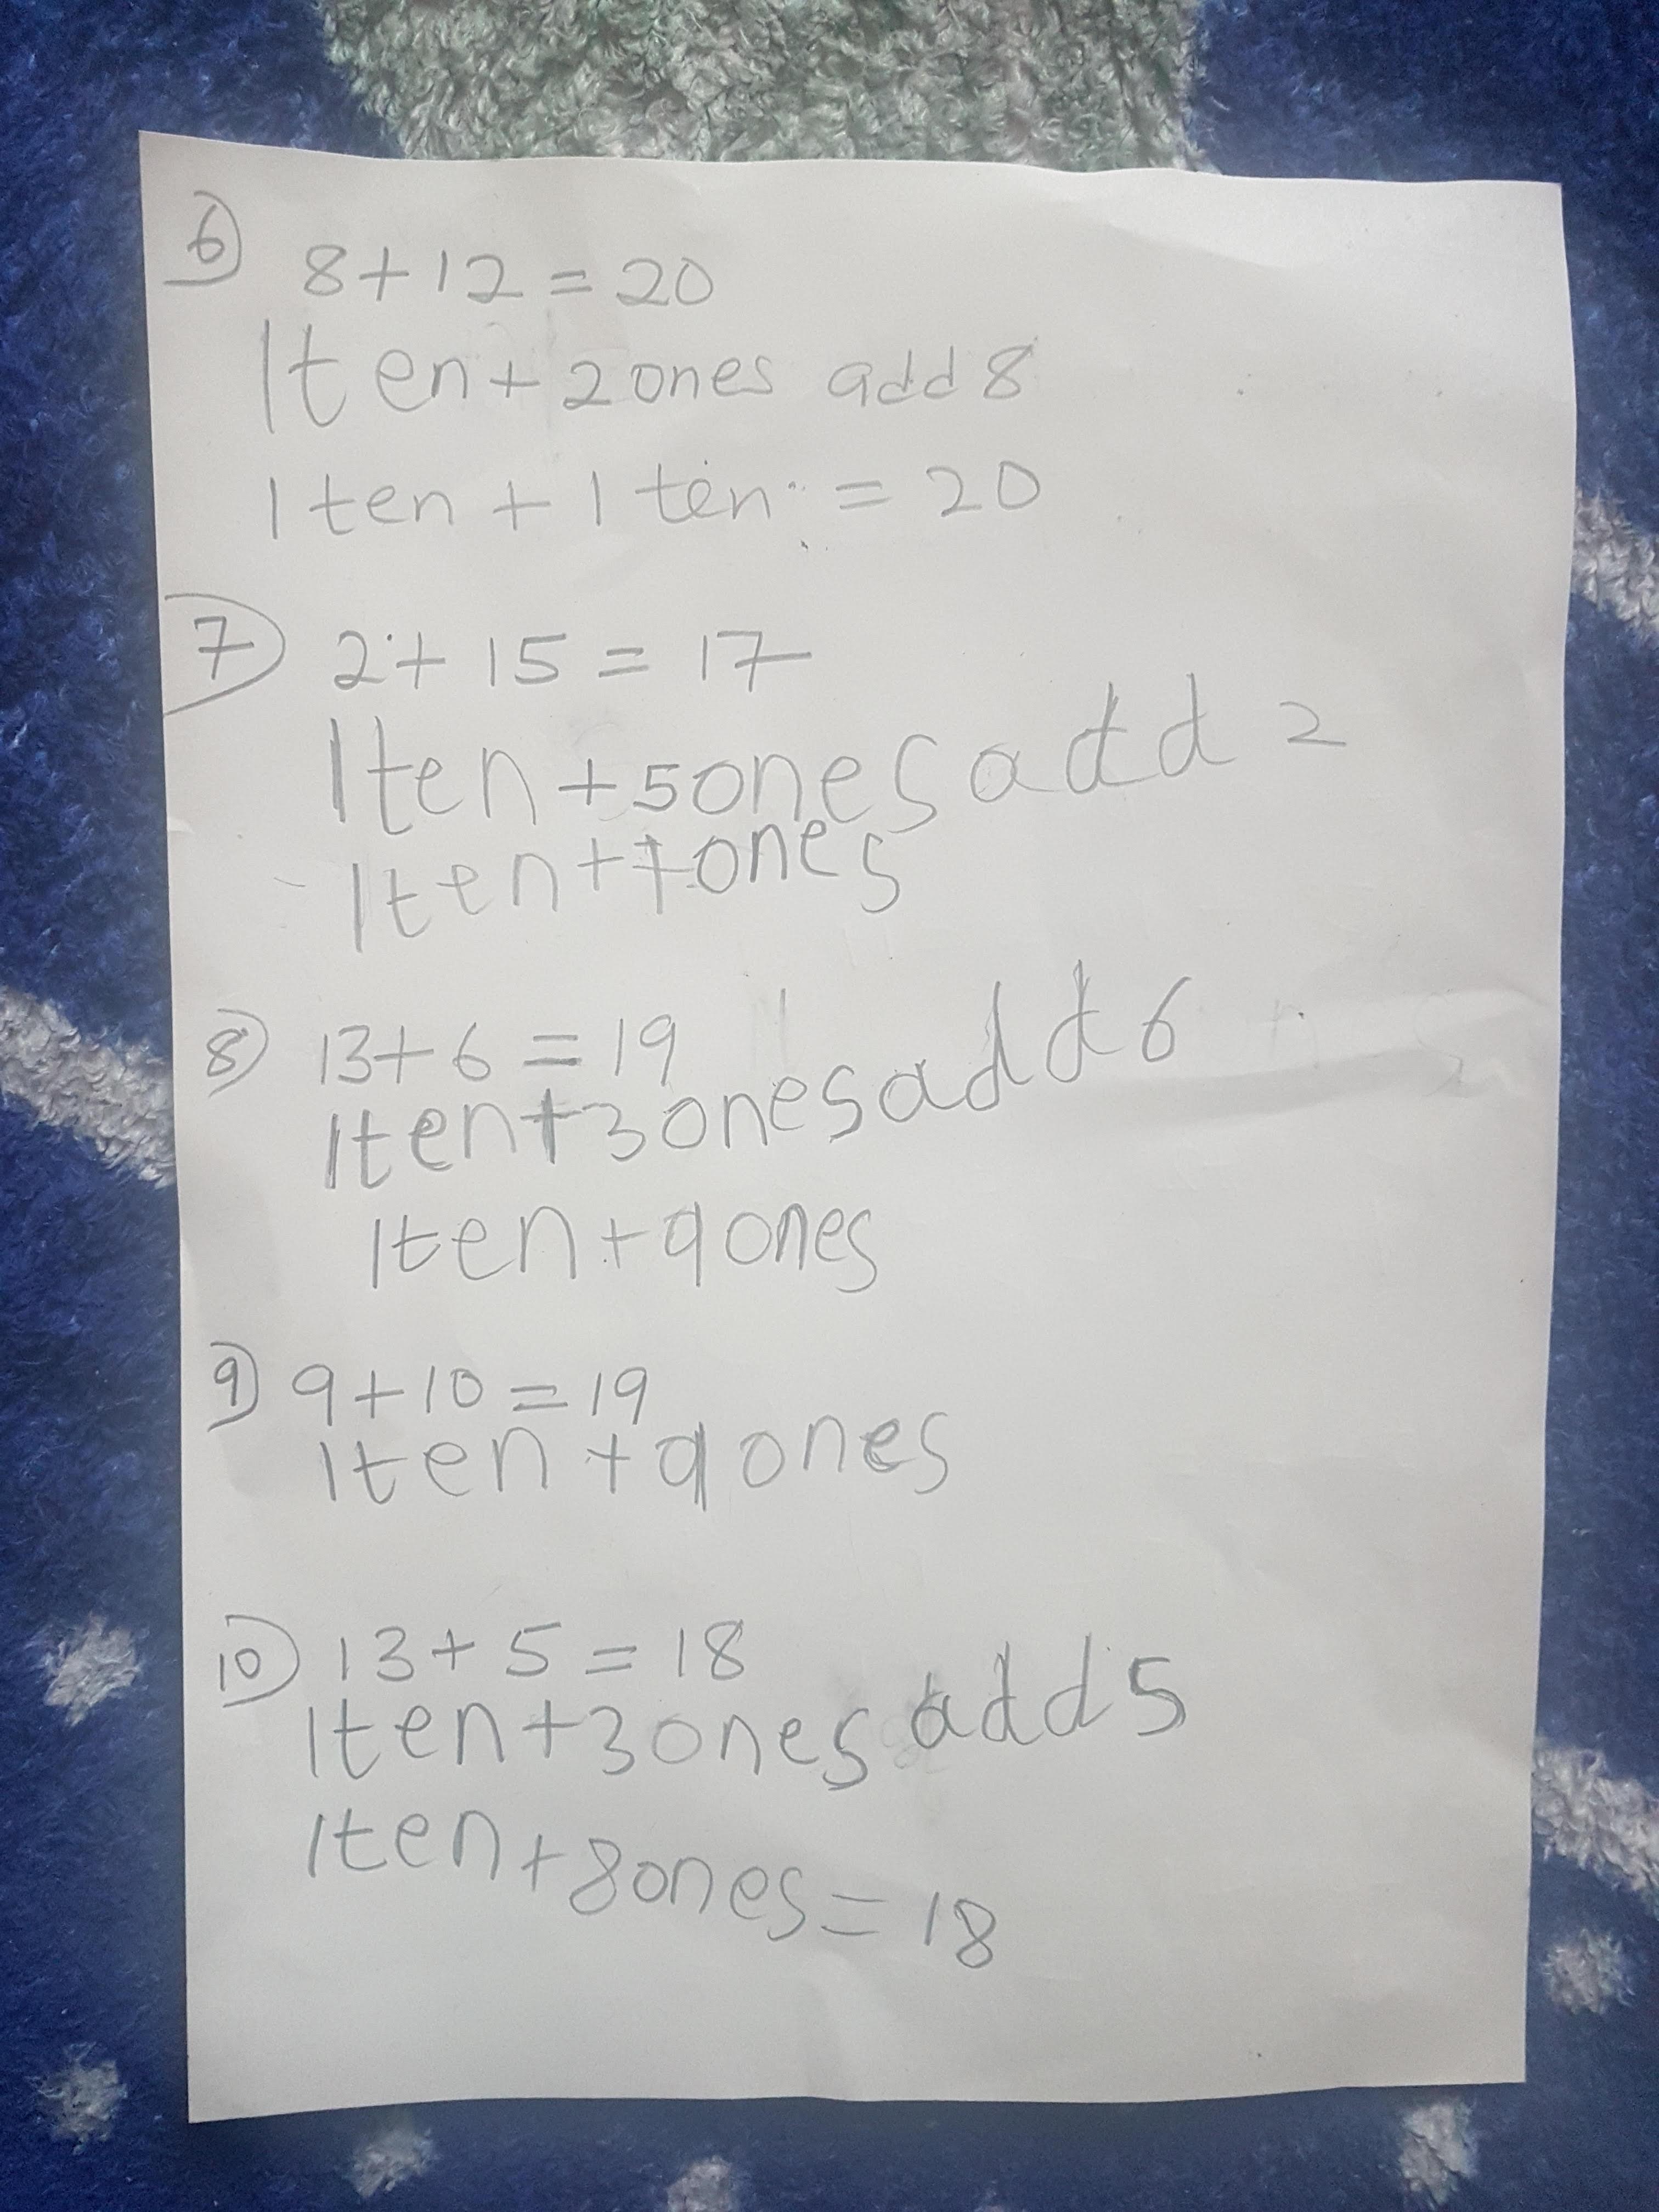 6
8+12=20
1ten+2ones add 8
1ten+1ten=20
7
2+15=17
1ten+5ones add 2
1ten+7ones
8
13+6=19
1ten+3ones add 6
1ten+9ones
9
9+10=19
1ten+9ones
10
13+5=18
1ten+3ones add 5
1ten+8ones=18